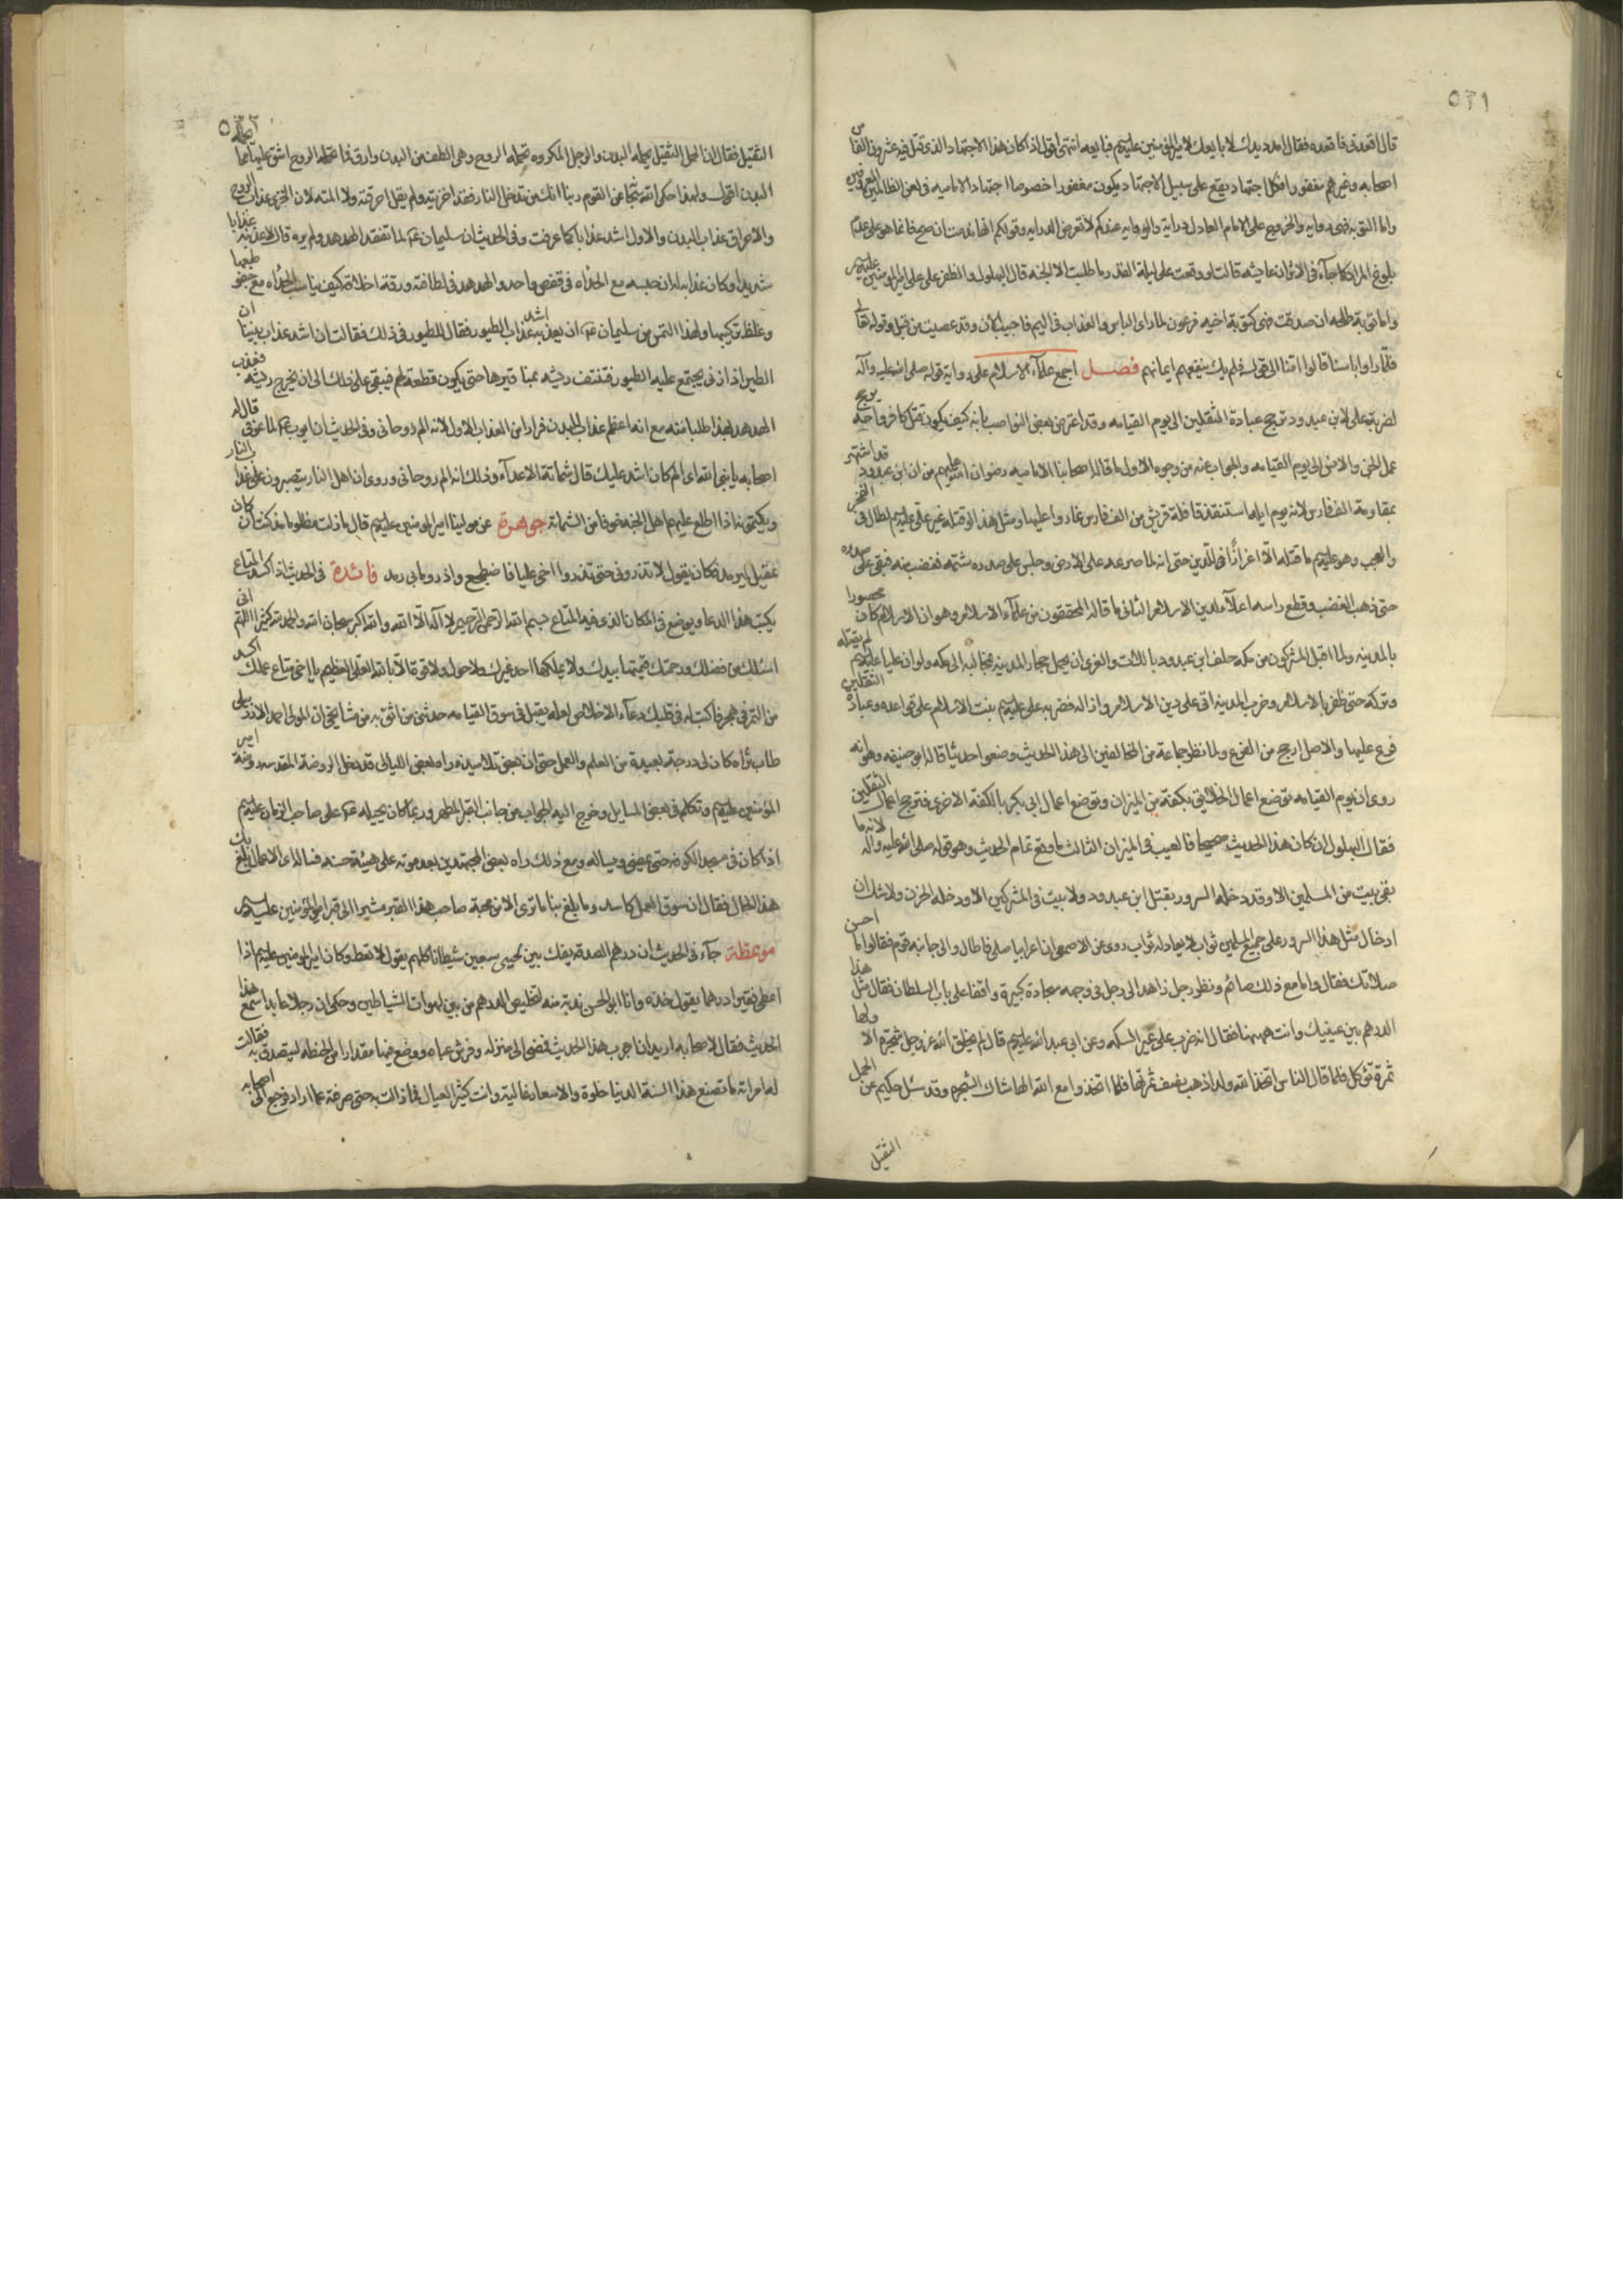 ٥٣١
قال اقعدني فاقعده فقال امدد يدك لابايعك لامير المؤمنين عليه السلم فبايعه انتهى اقول اذا كان هذا الاجتهاد الذي قتل فيه عشرون الفا من
اصحابه وغيرهم مغفورا فكل اجتهاد يقع على سبيل الاجتهاد يكون مغفورا خصوصا اجتهاد الاماميه في لعن الظالمين
واما التوبه فهي روايه والخروج على الامام العادل درايه والروايه عندكم لا تعارض الدرايه وقولكم انها ندمت ان صح فانما هو على عدم
بلوغ المراد كما جآء في الاثر ان عايشه قالت لو وقعت على ليلة القدر ما طلبت الا الجنه قال البهلول والظفر على علي امير المؤمنين عليه السلم
واما توبة طلحه ان صدقت فهي كتوبة اخيه فرعون لما راى الباس والعذاب في اليم فاجيب الآن وقد عصيت من قبل وقوله تعالى
فلما راوا باسنا قالوا امنا الى قوله فلم يك ينفعهم ايمانهم فصل اجمع علمآء الاسلام على رواية قوله صلى الله عليه وآله
لضربة علي لابن عبدود ترجح عبادة الثقلين الى يوم القيامه وقد اعترض بعض النواصب بانه كيف يكون قتل كافر واحد يرجح
عمل الجن والانس الى يوم القيامه والجواب عنه من وجوه الاول ما قاله اصحابنا الاماميه رضوان الله عليهم من ان ابن عبدود قد اشتهر
بمقاومة الف فارس لانه يوم ايله استنقذ قافلة قريش من الف فارس غاروا عليها ومثل هذا لو قتله غير علي عليه السلم لطال في الفخر
والعجب وهو عليه السلم ما قتله الا اعزازا في الدين حتى انه لما صرعه على الارض وجلس على صدره شتمه فغضب منه فبقي على صدره
حتى ذهب الغضب وقطع راسه اعلآء لدين الاسلام الثاني ما قاله المحققون من علمآء الاسلام وهو ان الاسلام كان محصورا
بالمدينه ولما اقبل المشركون من مكه حلف ابن عبدود باللات والعزى ان يحمل حجار المدينه مخاليه الى مكه ولو ان عليا عليه السلم لم يقتله
وتركه حتى ظفر بالاسلام وخرب المدينه اتى على دين الاسلام وازاله فضربه علي عليه السلم بنت الاسلام على قواعده وعبادة الثقلين
فرع عليها والاصل ارجح من الفرع ولما نظر جماعة من المخالفين الى هذا الحديث وضعوا حديثا قاله ابو حنيفه وهو انه
روى ان يوم القيامه توضع اعمال الخلائق بكفة من الميزان وتوضع اعمال ابي بكر بالكفه الاخرى فترجح اعمال الثقلين
فقال البهلول ان كان هذا الحديث صحيحا فالعيب في الميزان الثالث ما وقع تمام الحديث وهو قوله صلى الله عليه وآله لانه ما
بقي بيت من المسلمين الا وقد دخله السرور بقتل ابن عبدود ولا بيت في المشركين الا ودخله الحزن ولا شك ان
ادخال مثل هذا السرور على جميع المسلمين ثواب لا يعادله ثواب روى عن الاصمعي ان اعرابيا صلى فاطال والى جانبه قوم فقالوا ما احسن
صلاتك فقال وانا مع ذلك صائم ونظر رجل زاهد الى رجل في وجهه سجادة كبيرة واقفا على باب السلطان فقال مثل هذا
الدرهم بين عينيك وانت ههنا فقال انه ضرب على غير السكه وعن ابي عبد الله عليه السلم قال لم يخلق الله عز وجل شجرة الا ولها
ثمرة تؤكل فلما قال الناس اتخذ الله ولدا ذهب نصف ثمرتها فلما اتخذوا مع الله الها شاك الشجر وقد سئل حكيم عن الحمل
الثقيل
٥٣٢
الثقيل فقال ان الحمل الثقيل يحمله البدن والرجل المكروه تحمله الروح وهي الطف من البدن وارق فما تحمله الروح اشق عليها مما يحمله
البدن اقول ولهذا حكى الله تعالى عن القوم ربنا انك من تدخل النار فقد اخزيته ولم يقل احرقته ولا المته لان الخزي عذاب الروح
والاحراق عذاب البدن والاول اشد عذابا كما عرفت وفي الحديث ان سليمان ع لما تفقد الهدهد ولم يره قال لاعذبنه عذابا
شديدا وكان عذابه له ان حبسه مع الحداه في قفص واحد والهدهد في لطافته ورقة اخلاقه كيف يناسب الحداه مع طبعها
وغلظ تركيبها ولهذا التمس من سليمان ع ان يعذبه اشد عذاب الطيور فقال للطيور في ذلك فقالت ان اشد عذاب بيننا ان
الطير اذا اذنب يجتمع عليه الطيور فتنتف ريشه بمناقيرها حتى يكون قطعة لحم فيبقى على ذلك الى ان يخرج ريشه فعذب
الهدهد بهذا طلبا منه مع انه اعظم عذاب البدن فرارا من العذاب الاول لانه الم روحاني وفي الحديث ان ايوب ع لما عوفي قال له
اصحابه يا نبي الله اي الم كان اشد عليك قال شماتة الاعدآء وذلك انه الم روحاني وروى ان اهل النار يتصبرون على عذاب النار
ويكتمونه اذا اطلع عليهم اهل الجنه خوفا من الشماته جوهرة عن مولينا امير المؤمنين عليه السلم قال ما زلت مظلوما مذ كنت كان
عقيل ارمد فكان يقول لا تذروني حتى تذروا اخي عليا فاضطجع واذر وما بي رمد فائدة في الحديث اذا كسد المتاع
يكتب هذا الدعا ويوضع في المكان الذي فيه المتاع بسم الله الرحمن الرحيم لا آله الا الله والله اكبر سبحان الله والحمد لله كثيرا اللهم اني
اسئلك من فضلك ورحمتك فانهما بيدك ولا يملكهما احد غيرك ولا حول ولا قوة الا بالله العلي العظيم يا اخي متاع عملك اكسد
من التمر في هجر فاكتب له في قلبك دعآء الاخلاص لعله يقبل في سوق القيامه حدثني من اثق به من مشايخي ان المولى احمد الاردبيلي
طاب ثراه كان له درجة بعيدة من العلم والعمل حتى ان بعض تلاميذه راه بعض الليالي قد دخل الروضة المقدسه روضة امير
المؤمنين عليه السلم وتكلم في بعض المسايل وخرج اليه الجواب من جانب القبر المطهر وربما كان يحيله ع على صاحب الزمان عليه السلم
اذا كان في مسجد الكوفه حتى يمضي ويساله ومع ذلك راه بعض المجتهدين بعد موته على هيئة حسنه فساله اي الاعمال بلغ بك
هذا الحال فقال ان سوق العمل كاسد وما بلغ بنا ما ترى الا من محبة صاحب هذا القبر مشيرا الى قبر امير المؤمنين عليه السلم
موعظة جآء في الحديث ان درهم الصدقه يفك بين لحيي سبعين شيطانا كلهم يقول لا تعطه وكان امير المؤمنين عليه السلم اذا
اعطى فقيرا درهما يقول خذه وانا ابو الحسن لتخليص الدرهم من بين لهوات الشياطين وحكى ان رجلا عابدا سمع هذا
الحديث فقال لاصحابه اريد ان اجرب هذا الحديث فمضى الى منزله وفرش عباه ووضع فيها مقدارا من الحنطه ليتصدق به فقالت
له امراته ما تصنع هذا السنة الدنيا والاسعار غاليه وانت كثير العيال فما زالت به حتى صرفته عما اراد فرجع الى اصحابه